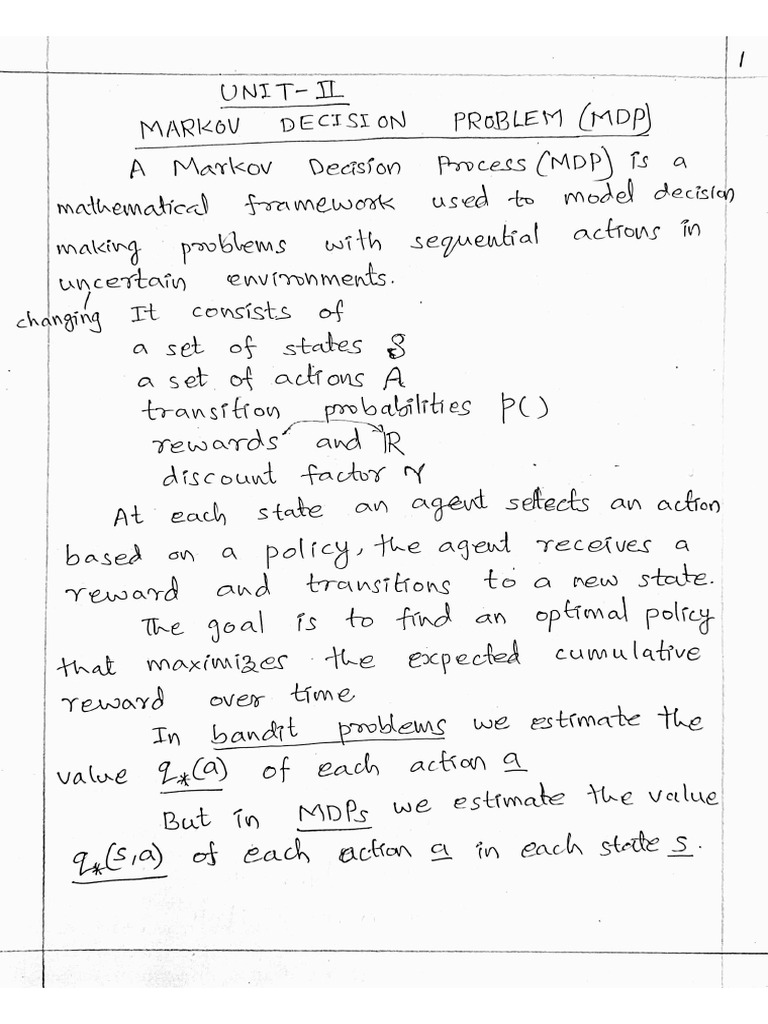 1
UNIT-II
MARKOV DECISION PROBLEM (MDP)
A Markov Decision Process (MDP) is a
mathematical framework used to model decision
making problems with sequential actions in
uncertain environments.
changing It consists of
a set of states S
a set of actions A
transition probabilities P()
rewards and R
discount factor γ
At each state an agent selects an action
based on a policy, the agent receives a
reward and transitions to a new state.
The goal is to find an optimal policy
that maximizes the expected cumulative
reward over time
In bandit problems we estimate the
value q*(a) of each action a
But in MDPs we estimate the value
q*(s,a) of each action a in each state s.